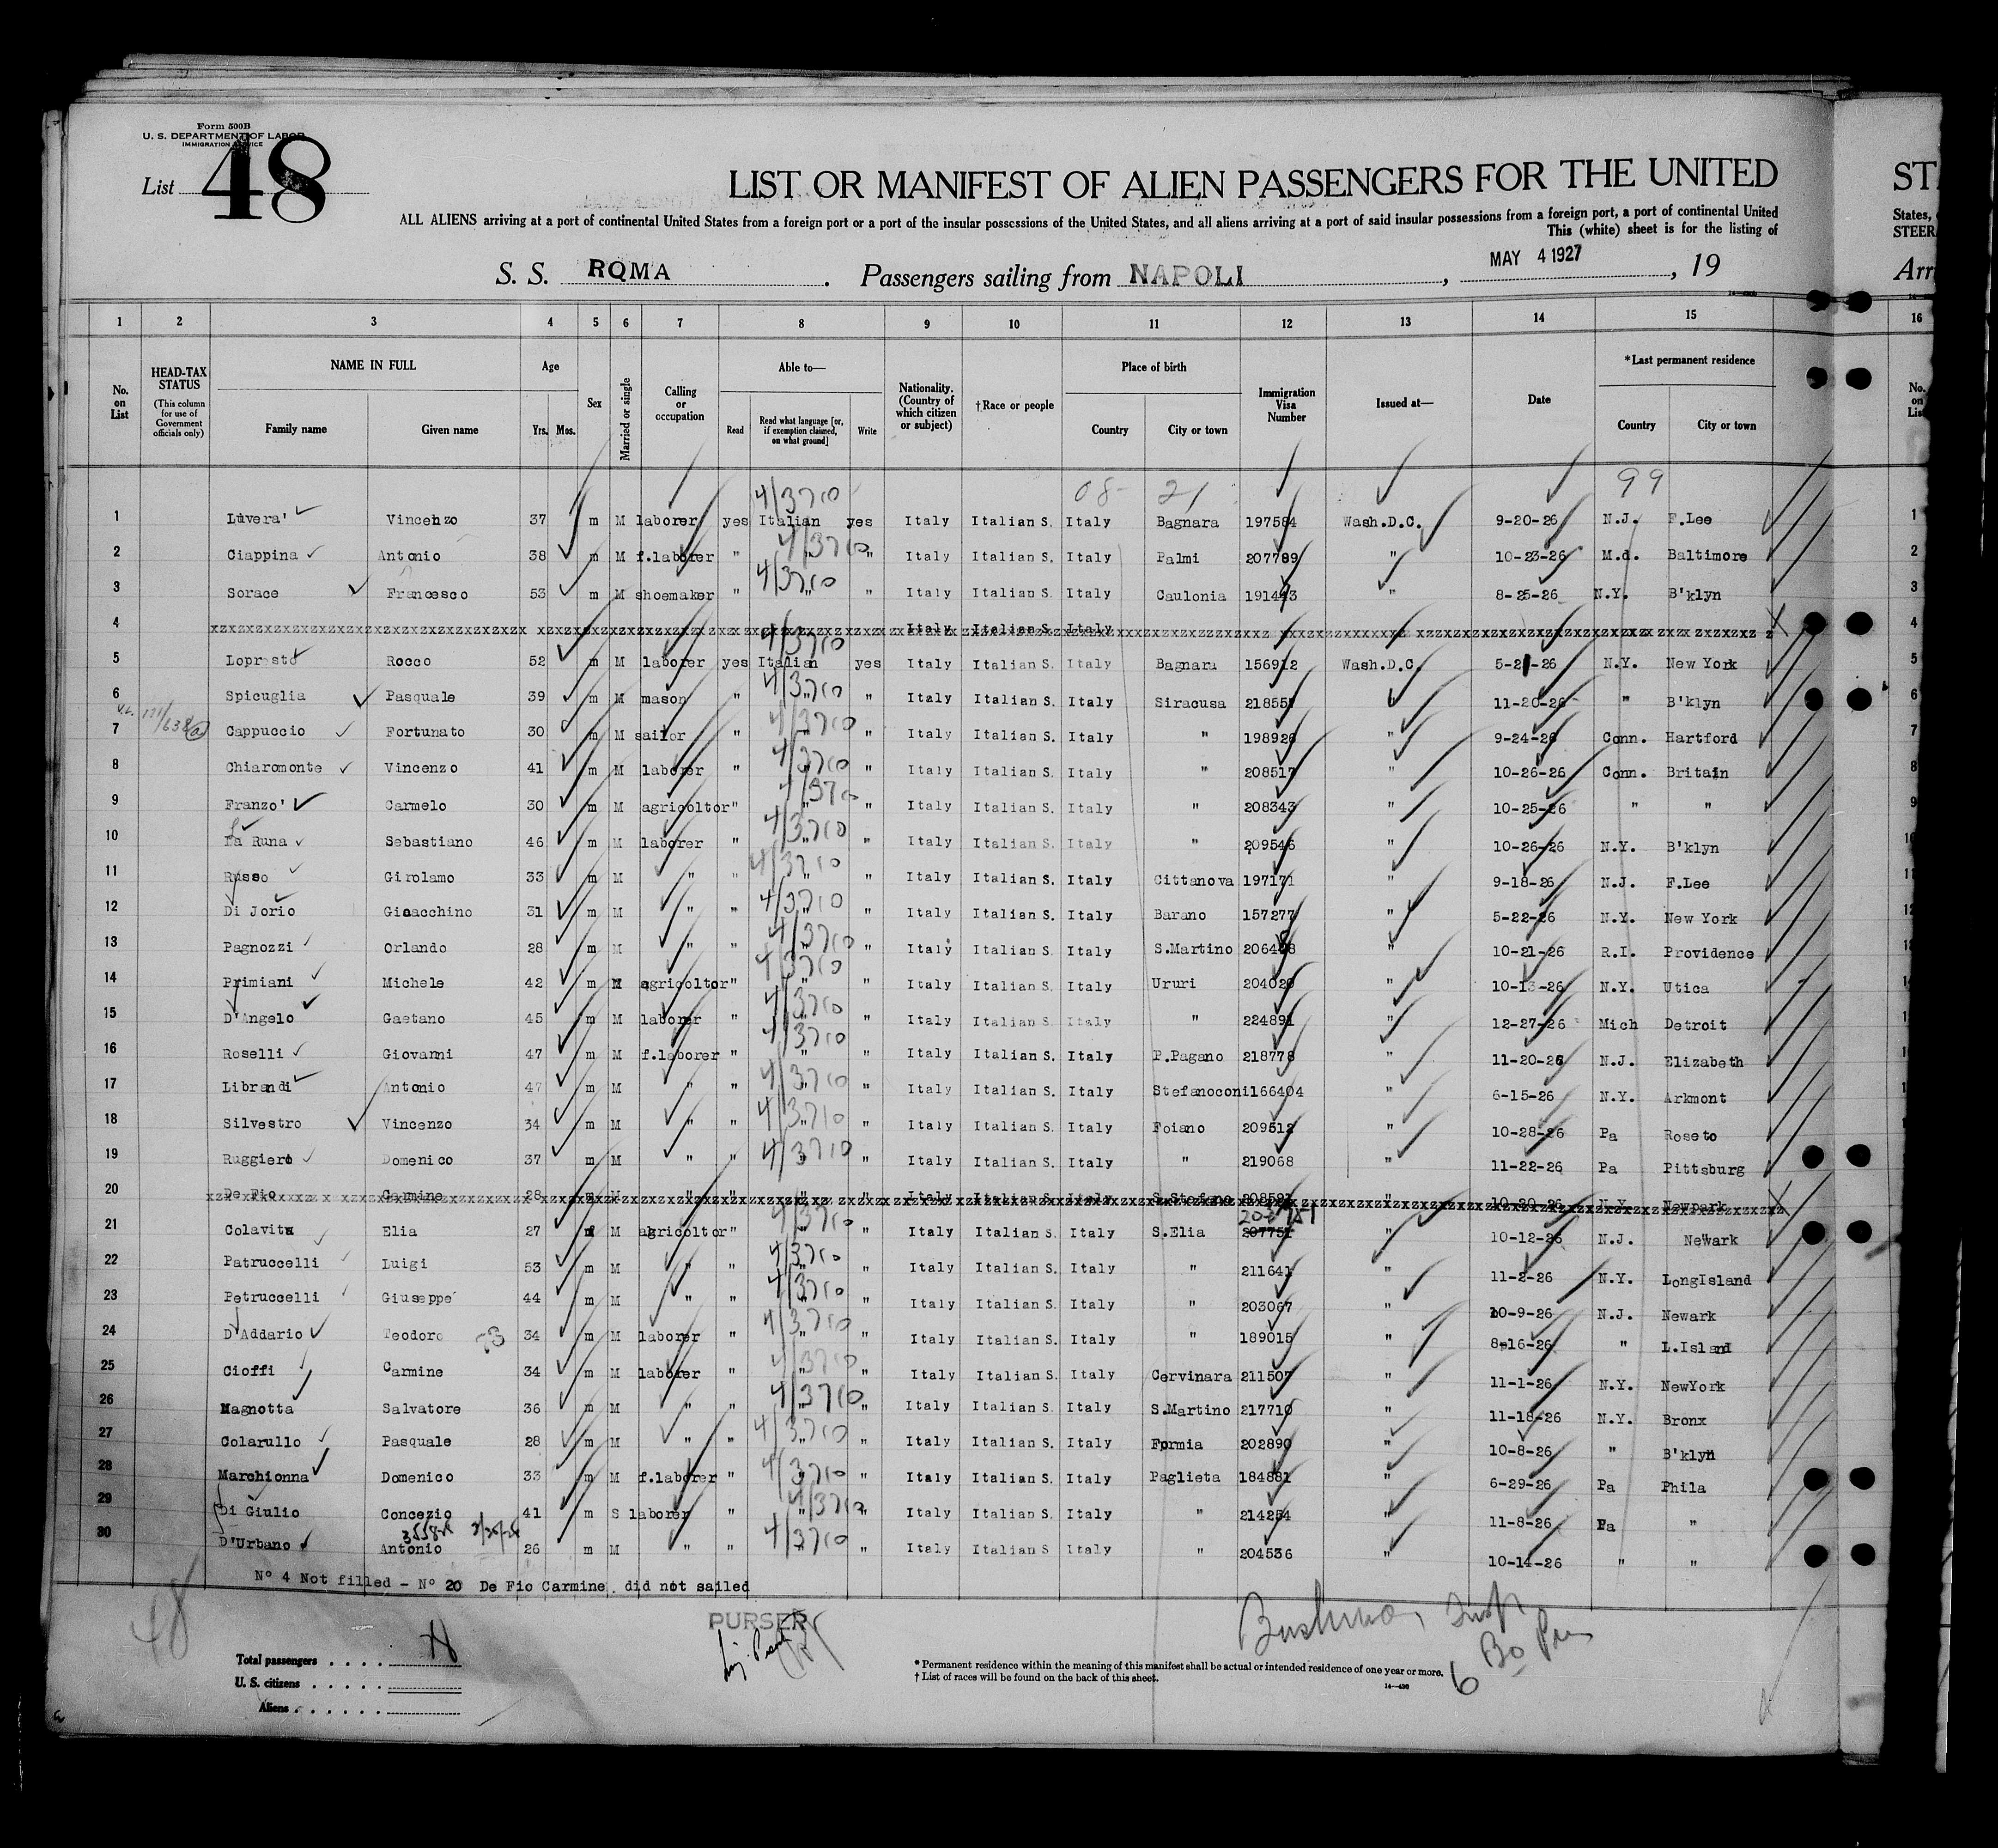 Form 500B
U. S. DEPARTMENT OF LABOR
IMMIGRATION SERVICE
List 48
LIST OR MANIFEST OF ALIEN PASSENGERS FOR THE UNITED
ALL ALIENS arriving at a port of continental United States from a foreign port or a port of the insular possessions of the United States, and all aliens arriving at a port of said insular possessions from a foreign port, a port of continental United
This (white) sheet is for the listing of
S. S. ROMA . Passengers sailing from NAPOLI , MAY 4 1927 , 19
1 2 3 4 5 6 7 8 9 10 11 12 13 14 15
No. on List
HEAD-TAX STATUS (This column for use of Government officials only)
NAME IN FULL Family name Given name
Age Yrs. Mos.
Sex
Married or single
Calling or occupation
Able to— Read Read what language [or, if exemption claimed, on what ground] Write
Nationality. (Country of which citizen or subject)
†Race or people
Place of birth Country City or town
Immigration Visa Number
Issued at—
Date
*Last permanent residence Country City or town
4/3710 08- 21 99
1 Luvera' Vincenzo 37 m M laborer yes Italian yes Italy Italian S. Italy Bagnara 197584 Wash.D.C. 9-20-26 N.J. F.Lee
2 Ciappina Antonio 38 m M f.laborer " 4/3710 " Italy Italian S. Italy Palmi 207789 " 10-23-26 M.d. Baltimore
3 Sorace Francesco 53 m M shoemaker " 4/3710 " " Italy Italian S. Italy Caulonia 191443 " 8-25-26 N.Y. B'klyn
4 Italy Italian S. Italy
5 Lopresto Rocco 52 m M laborer yes 4/3710 Italian yes Italy Italian S. Italy Bagnara 156912 Wash.D.C. 5-21-26 N.Y. New York
6 Spicuglia Pasquale 39 m M mason " 4/3710 " " Italy Italian S. Italy Siracusa 218557 11-20-26 " B'klyn
7 Cappuccio Fortunato 30 m M sailor " 4/3710 " " Italy Italian S. Italy " 198926 " 9-24-26 Conn. Hartford
8 Chiaromonte Vincenzo 41 m M laborer " 4/3710 " " Italy Italian S. Italy " 208517 " 10-26-26 Conn. Britain
9 Franzo' Carmelo 30 m M agricoltor " 4/3710 " " Italy Italian S. Italy " 208343 " 10-25-26 " "
10 La Runa Sebastiano 46 m M laborer " 4/3710 " " Italy Italian S. Italy " 209546 " 10-26-26 N.Y. B'klyn
11 Russo Girolamo 33 m M " " 4/3710 " " Italy Italian S. Italy Cittanova 197171 " 9-18-26 N.J. F.Lee
12 Di Jorio Gioacchino 31 m M " " 4/3710 " " Italy Italian S. Italy Barano 157277 " 5-22-26 N.Y. New York
13 Pagnozzi Orlando 28 m M " " 4/3710 " " Italy Italian S. Italy S.Martino " 10-21-26 R.I. Providence
14 Primiani Michele 42 m M agricoltor " 4/3710 " " Italy Italian S. Italy Ururi 204020 " 10-13-26 N.Y. Utica
15 D'Angelo Gaetano 45 m M laborer " 4/3710 " " Italy Italian S. Italy " 224891 " 12-27-26 Mich Detroit
16 Roselli Giovanni 47 m M f.laborer " 4/3710 " " Italy Italian S. Italy P.Pagano 218778 " 11-20-26 N.J. Elizabeth
17 Librandi Antonio 47 m M " " 4/3710 " " Italy Italian S. Italy Stefanoconi 166404 " 6-15-26 N.Y. Arkmont
18 Silvestro Vincenzo 34 m M " " 4/3710 " " Italy Italian S. Italy Foiano 209512 " 10-28-26 Pa Roseto
19 Ruggiero Domenico 37 m M " " 4/3710 " " Italy Italian S. Italy " 219068 " 11-22-26 Pa Pittsburg
20 De Fio Carmine 28 m M " " " " Italy Italian S. Italy S.Stefano 208591 " 10-20-26 N.Y. Newpark
21 Colavita Elia 27 m M agricoltor " 4/3710 " " Italy Italian S. Italy S.Elia 207751 " 10-12-26 N.J. Newark
22 Patruccelli Luigi 53 m M " " 4/3710 " " Italy Italian S. Italy " 211641 " 11-2-26 N.Y. LongIsland
23 Petruccelli Giuseppe' 44 m M " " 4/3710 " " Italy Italian S. Italy " 203067 " 10-9-26 N.J. Newark
24 D'Addario Teodoro 34 m M laborer " 4/3710 " " Italy Italian S. Italy " 189015 " 8-16-26 " L.Island
25 Cioffi Carmine 34 m M laborer " 4/3710 " " Italy Italian S. Italy Cervinara 211507 " 11-1-26 N.Y. NewYork
26 Magnotta Salvatore 36 m M " " 4/3710 " " Italy Italian S. Italy S.Martino 217710 " 11-18-26 N.Y. Bronx
27 Colarullo Pasquale 28 m M " " 4/3710 " " Italy Italian S. Italy Formia 202890 " 10-8-26 " B'klyn
28 Marchionna Domenico 33 m M f.laborer " 4/3710 " " Italy Italian S. Italy Paglieta 184881 " 6-29-26 Pa Phila
29 Di Giulio Concezio 41 m S laborer " 4/3710 " " Italy Italian S. Italy " 214254 " 11-8-26 Pa "
30 D'Urbano Antonio 26 m M " " 4/3710 " " Italy Italian S Italy " 204536 " 10-14-26 " "
Nº 4 Not filled - Nº 20 De Fio Carmine. did not sailed
48
PURSER
Total passengers
U. S. citizens
Aliens
* Permanent residence within the meaning of this manifest shall be actual or intended residence of one year or more.
† List of races will be found on the back of this sheet.
14—430
ST
States,
STEER
Arr
16
No. on List
1
2
3
4
5
6
7
8
9